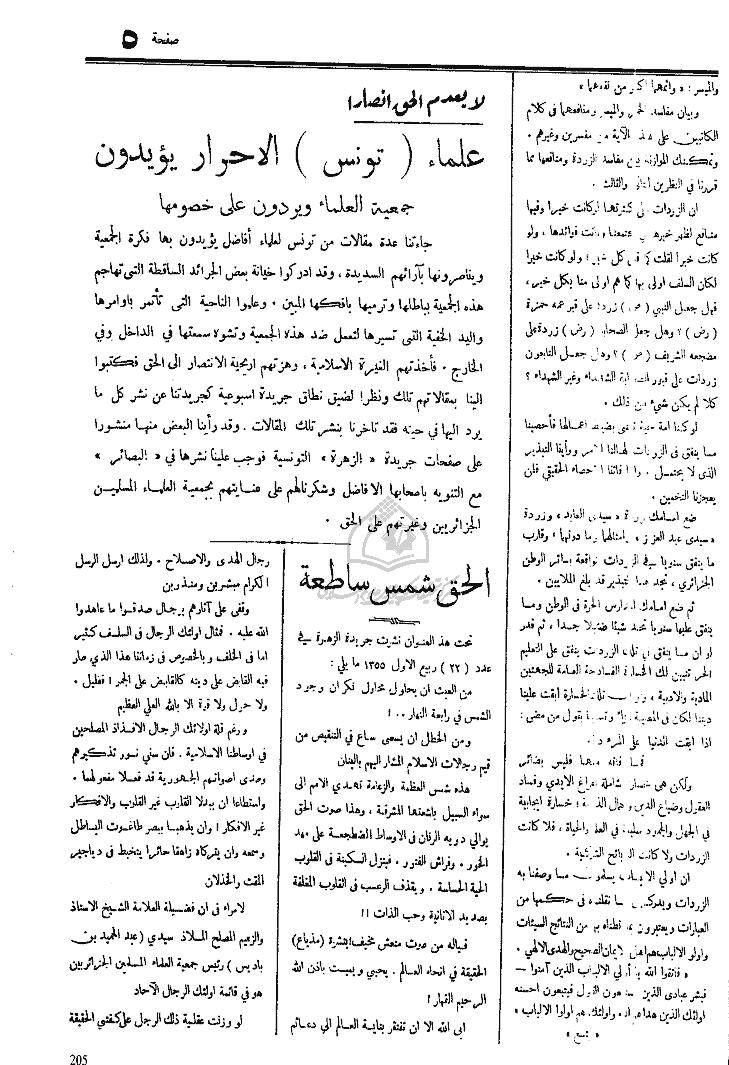 صفحة ٥
والميسر : « واثمهما اكبر من نفعهما »
وبيان مفاسد الخمر والميسر ومنافعهما في كلام
الكاتبين على هذه الآية من مفسرين وغيرهم .
ويمكنك الموازنة بين مفاسد الزردة ومنافعها مما
قررنا في النظرين الثاني والثالث .
ان الزردات على كثرتها لو كانت خيرا وفيها
منافع لظهر خيرها في مجتمعنا وبانت فوائدها ، ولو
كانت خيرا لقلت كما قل كل خير ؛ ولو كانت خيرا
لكان السلف اولى بها كما هم اولى منا بكل خير ،
فهل جعل النبي (ص) زردة على قبر عمه حمزة
(رض) ؟ وهل جعل الصحابة (رض) زردة على
مضجعه الشريف (ص) ؟ وهل جعل التابعون
زردات على قبور الصحابة الشهداء وغير الشهداء ؟
كلا لم يكن شيء من ذلك .
لو كنا امة حية تعنى بضبط اعمالها فأحصينا
ما ينفق في الزردات لهالنا الامر ورأينا التبذير
الذي لا يحتمل . واذا فاتنا الاحصاء الحقيقي فلن
يعجزنا التخمين .
ضع امامك زردة « سيدي العابد » وزردة
« سيدي عبد العزيز » وامثالهما وما دونهما » وقارب
ما ينفق سنويا في الزردات الواقعة بسائر الوطن
الجزائري ، تجد هذا التبذير قد بلغ الملايين .
ثم ضع امامك المدارس الحرة في الوطن وما
ينفق عليها سنويا تجده شيئا ضئيلا جدا ، ثم قدر
لو ان ما ينفق في تلك الزردات ينفق على التعليم
الحر تتبين لك الخسارة الفادحة العامة للجهتين
المادية والادبية ، تلك الخسارة ابقت علينا
ديننا لكان في المصيبة وتسلية بقول من مضى :
اذا ابقت الدنيا على المرء دينه
فما فاته منها فليس بضائر
ولكن هي خسارة شاملة لفراغ الايدي وفساد
العقول وضياع الدين وهمال الذمة ؛ خسارة ايجابية
في الجهل والجمود سلبية في العلم والحياة ، فلا كانت
الزردات ولا كانت الشريعية .
ان اولي الالباب يسلمون بما وصفنا به
الزردات ويدركون ما نقلناه في حكمها من
العبارات ويعتبرون بما نظناه بها من النتائج السيئات
واولو الالباب هم اهل الايمان الصحيح والهدى الالهي .
« فاتقوا الله يا أولي الالباب الذين آمنوا —
فبشر عبادي الذين يستمعون القول فيتبعون احسنه
اولئك الذين هداهم الله واولئك هم اولوا الالباب »
« يتبع »
لا يعدم الحق انصارا
علماء ( تونس ) الاحرار يؤيدون
جمعية العلماء ويردون على خصومها
جاءتنا عدة مقالات من تونس لعلماء أفاضل يؤيدون بها فكرة الجمعية
ويناصرونها بآرائهم السديدة ، وقد ادركوا خيانة بعض الجرائد الساقطة التي تهاجم
هذه الجمعية بباطلها وترميها بافكها المبين . وعلموا الناحية التي تأتمر باوامرها
واليد الخفية التي تسيرها لتعمل ضد هذه الجمعية وتشوه سمعتها في الداخل وفي
الخارج . فأخذتهم الغيرة الاسلامية ، وهزتهم اريحية الانتصار الى الحق فكتبوا
الينا بمقالاتهم تلك ونظرا لضيق نطاق جريدة اسبوعية كجريدتنا عن نشر كل ما
يرد اليها في حينه فقد تأخرنا بنشر تلك المقالات . وقد رأينا البعض منها منشورا
على صفحات جريدة « الزهرة » التونسية فوجب علينا نشرها في « البصائر »
مع التنويه باصحابها الافاضل وشكرنا لهم على عنايتهم بجمعية العلماء المسلمين
الجزائريين وغيرتهم على الحق .
الحق شمس ساطعة
تحت هذا العنوان نشرت جريدة الزهرة في
عدد ( ٢٢ ) ربيع الاول ١٣٥٥ ما يلي :
من العبث ان يحاول محاول نكران وجود
الشمس في رابعة النهار ..!
ومن الخطل ان يسعى ساع في التنقيص من
قيم رجالات الاسلام المشار اليهم بالبنان
هذه شمس العظمة والزعامة تهدي الامم الى
سواء السبيل باشعتها المشرقة ، وهذا صوت الحق
يوالي دويه الرنان في الاوساط المضطجعة على مهد
الخور . وفراش الفتور . فينزل السكينة في القلوب
الحية الحساسة . ويقذف الرعب في القلوب المغلفة
بصديد الانانية وحب الذات !!
فياله من صوت منعش مخيف انبثرة (مذياع)
الحقيقة في انحاء العالم . يحيي ويميت باذن الله
الرحيم القهار !
ابى الله الا ان تفتقر بناية العالم الى دعائم
رجال الهدى والاصلاح . ولذلك ارسل الرسل
الكرام مبشرين ومنذرين
وقفى على آثارهم برجال صدقوا ما عاهدوا
الله عليه . فمثال اولئك الرجال في السلف كثير
اما في الخلف وبالخصوص في زماننا هذا الذي صار
فيه القابض على دينه كالقابض على الجمر ! فقليل .
ولا حول ولا قوة الا بالله العلي العظيم
ورغم قلة اولائك الرجال الافذاذ المصلحين
في اوساطنا الاسلامية . فان سني نور تذكيرهم
وصدى اصواتهم الجمهورية قد فعلا مفعولهما .
واستطاعا ان يبدلا القلوب غير القلوب والافكار
غير الافكار ! وان يذهبا ببصر طاغوت الباطل
وسمعه وان يتركاه زاهقا حائرا يتخبط في دياجير
المقت والخذلان
لامراء في ان فضيلة العلامة الشيخ الاستاذ
والزعيم المصلح الملاذ سيدي (عبد الحميد بن
باديس) رئيس جمعية العلماء المسلمين الجزائريين
هو في قائمة اولئك الرجال الآحاد
لو وزنت عقلية ذلك الرجل على كفتي الحقيقة
205